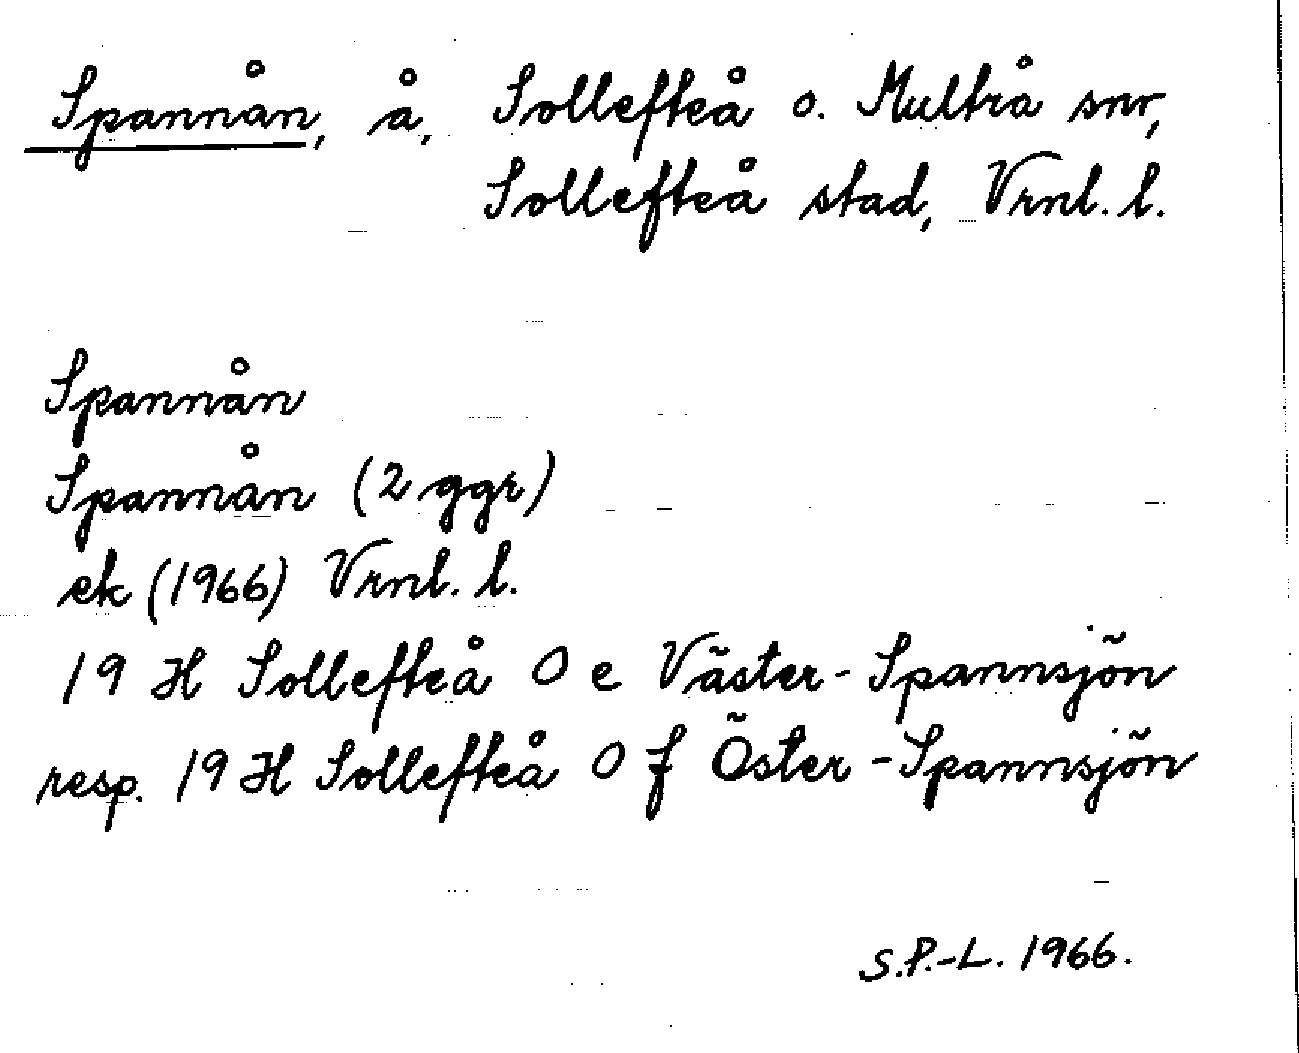 Spannån, å, Sollefteå o. Multrå snr,
Sollefteå stad, Vrnl. l.
Spannån
Spannån (2 ggr)
ek (1966) Vrnl. l.
19 H Sollefteå O e Väster-Spannsjön
resp. 19 H Sollefteå O f Öster-Spannsjön
S.P.-L. 1966.